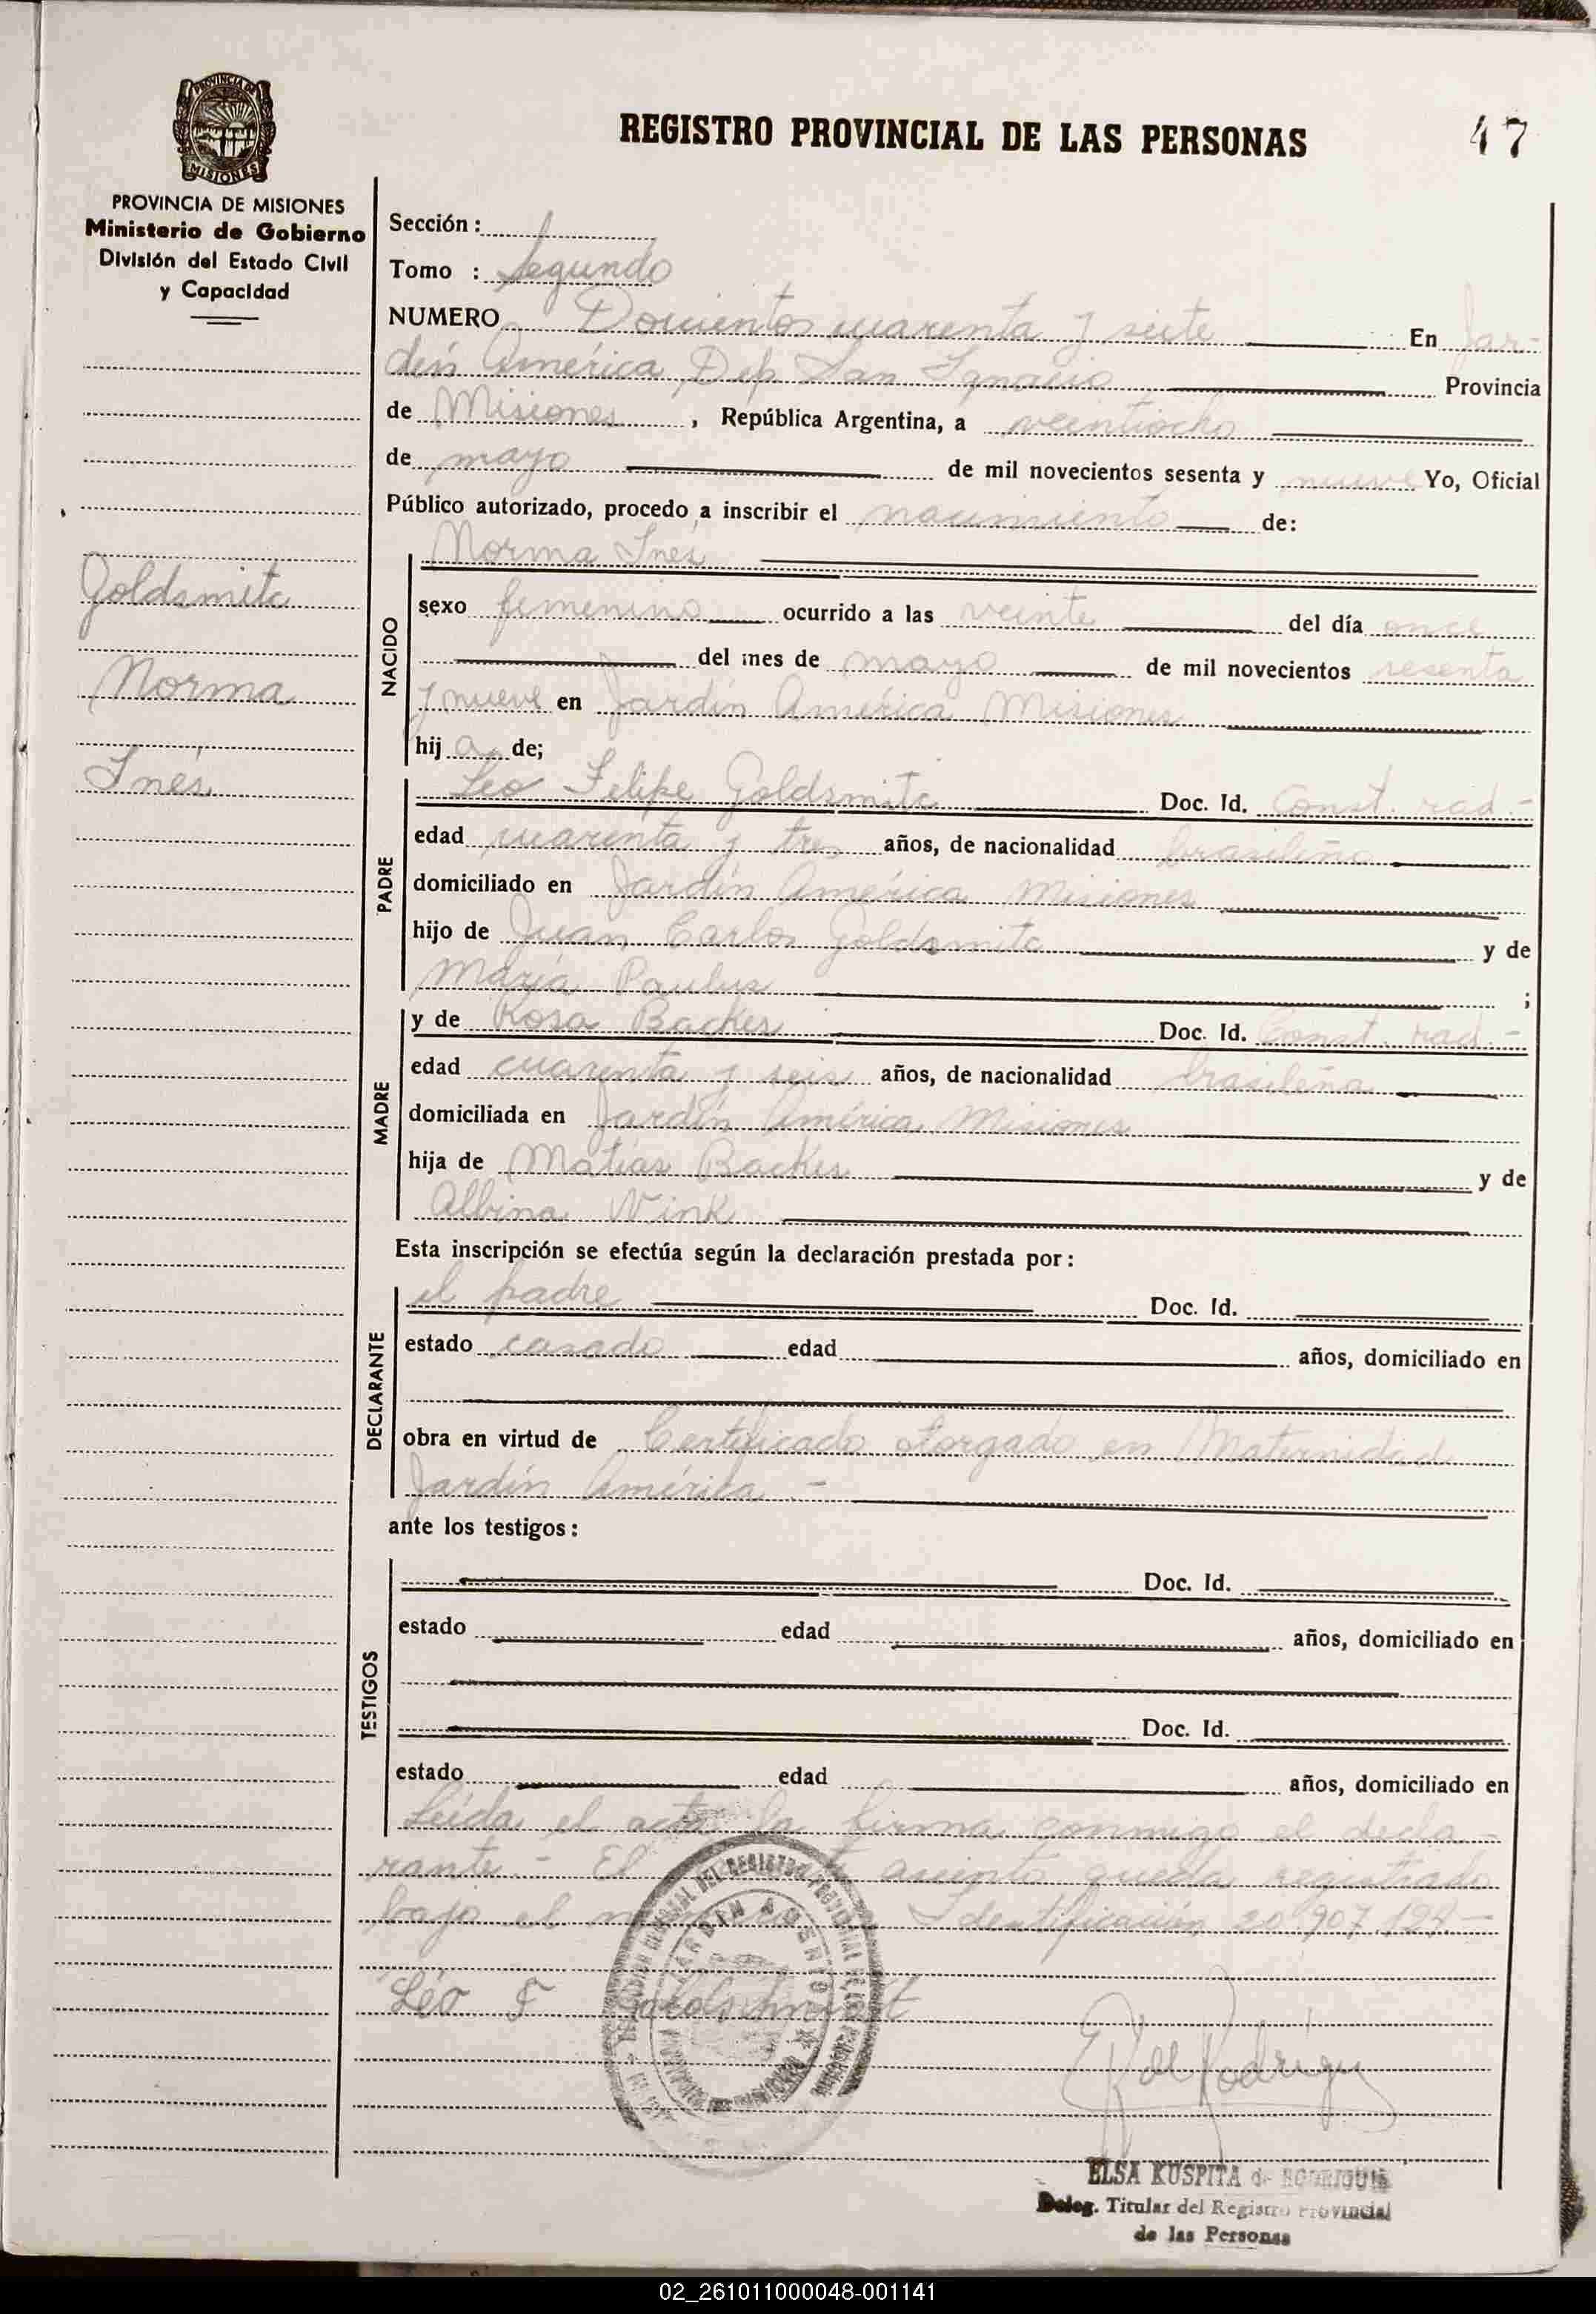 PROVINCIA DE
MISIONES
REGISTRO PROVINCIAL DE LAS PERSONAS
47
PROVINCIA DE MISIONES
Ministerio de Gobierno
División del Estado Civil
y Capacidad
Goldsmitc
Norma
Inés
Sección : 1
Tomo : Segundo
NUMERO Doscientos cuarenta y siete En Jar-
dín América Dep. San Ignacio Provincia
de Misiones, República Argentina, a veintiocho
de mayo de mil novecientos sesenta y nueve Yo, Oficial
Público autorizado, procedo a inscribir el nacimiento de:
NACIDO
Norma Inés
sexo femenino ocurrido a las veinte del día once
del mes de mayo de mil novecientos sesenta
y nueve en Jardín América Misiones
hij a de;
PADRE
Leo Felipe Goldsmitc Doc. Id. Const. rad.-
edad cuarenta y tres años, de nacionalidad brasileño
domiciliado en Jardín América Misiones
hijo de Juan Carlos Goldsmitc y de
María Paulus ;
MADRE
y de Rosa Backes Doc. Id. Const. rad.-
edad cuarenta y seis años, de nacionalidad brasileña
domiciliada en Jardín América Misiones
hija de Matías Backes y de
Albina Wink
Esta inscripción se efectúa según la declaración prestada por:
DECLARANTE
el padre Doc. Id.
estado casado edad años, domiciliado en
obra en virtud de Certificado otorgado en Maternidad
Jardín América.-
ante los testigos:
TESTIGOS
Doc. Id.
estado edad años, domiciliado en
Doc. Id.
estado edad años, domiciliado en
Leída el acta la firma conmigo el decla-
rante.- El asiento queda registrado
bajo el Identificación 20.907.129.-
Léo F Goldschmidt
ELSA KUSPITA de RODRIGUEZ
Deleg. Titular del Registro Provincial
de las Personas
02_261011000048-001141